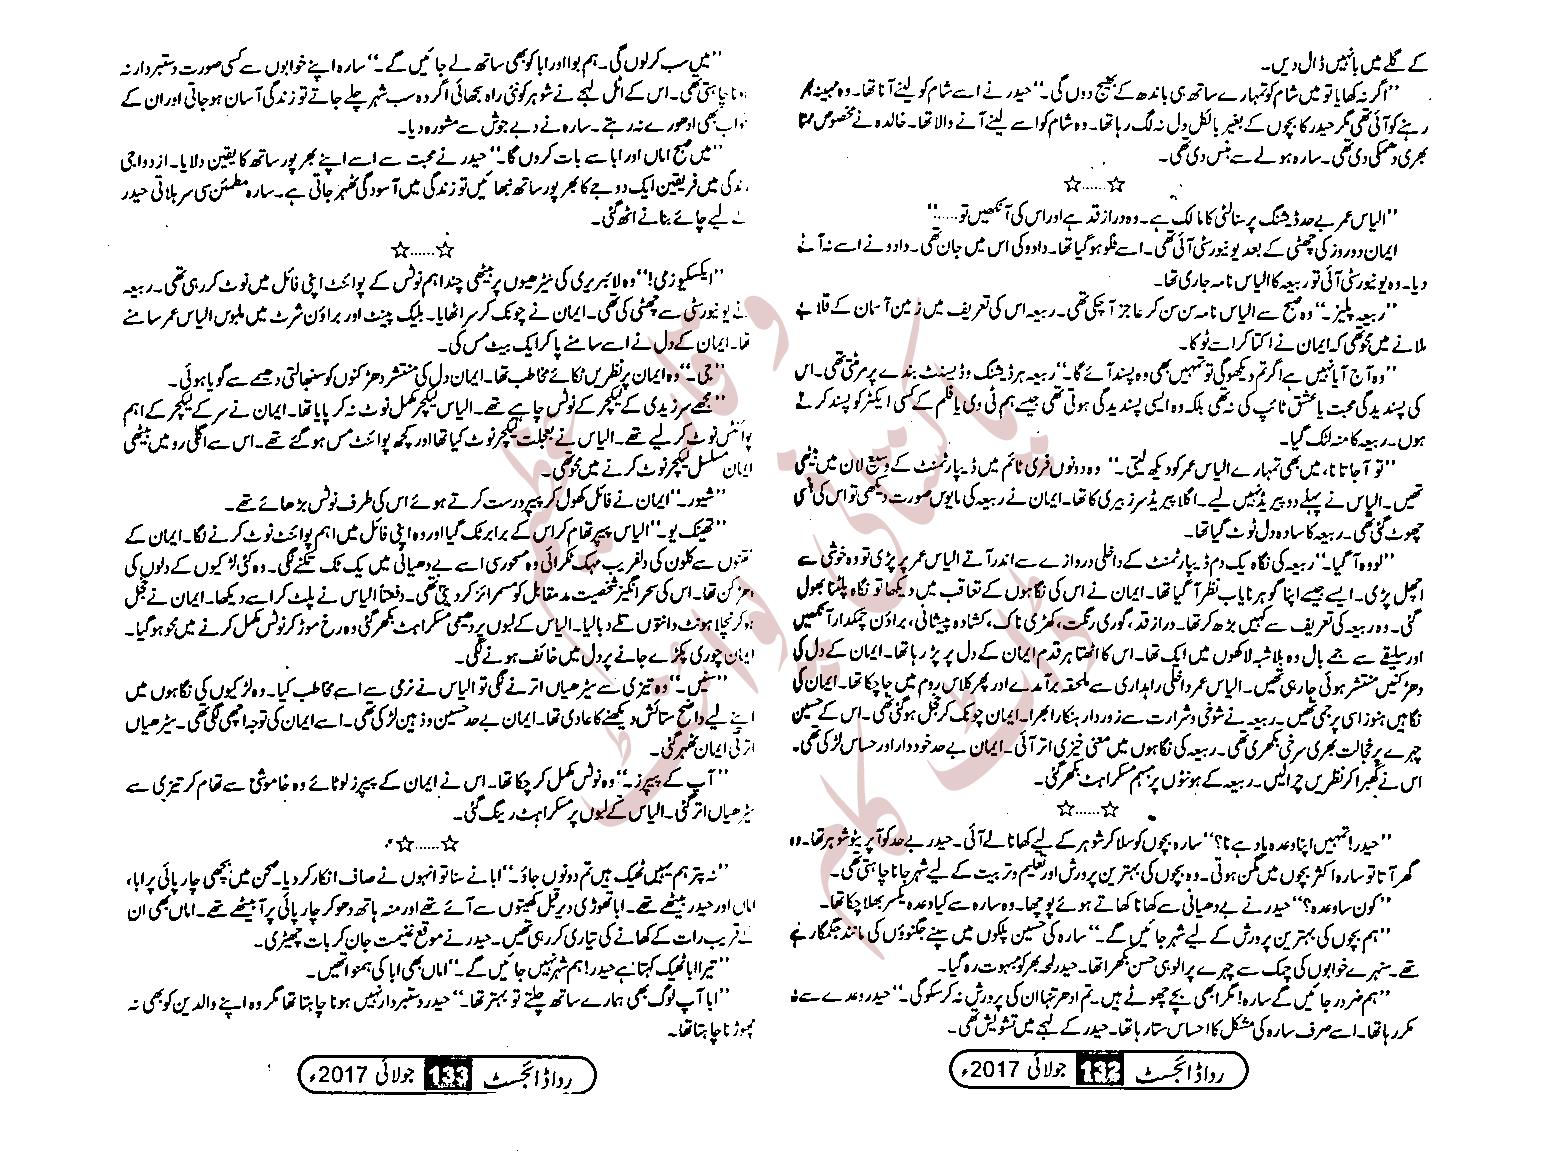 کے گلے میں بانہیں ڈال دیں۔
"اگر نہ کھایا تو میں شام کو تمہارے ساتھ ہی باندھ کے بھیج دوں گی۔" حیدر نے اسے شام کو لینے آنا تھا۔ وہ مہینہ
رہنے کو آئی تھی مگر حیدر کا بچوں کے بغیر بالکل دل نہ لگ رہا تھا۔ وہ شام کو اسے لینے آنے والا تھا۔ خالدہ نے مخصوص ممتا
بھری دھمکی دی تھی۔ سارہ ہولے سے ہنس دی تھی۔
☆......☆
"الیاس عمر بے حد ڈیشنگ پرسنالٹی کا مالک ہے۔ وہ دراز قد ہے اور اس کی آنکھیں تو....."
ایمان دو روز کی چھٹی کے بعد یونیورسٹی آئی تھی۔ اسے فلو ہو گیا تھا۔ دادو کی اس میں جان تھی۔ دادو نے اسے نہ آنے
دیا۔ وہ یونیورسٹی آئی تو ربیعہ کا الیاس نامہ جاری تھا۔
"ربیعہ پلیز۔" وہ صبح سے الیاس نامہ سن سن کر عاجز آ چکی تھی۔ ربیعہ اس کی تعریف میں زمین آسمان کے قلابے
ملانے میں محو تھی کہ ایمان نے اکتا کر اسے ٹوکا۔
"وہ آج آیا نہیں ہے اگر تم دیکھو گی تو تمہیں بھی وہ پسند آئے گا۔" ربیعہ ہر ڈیشنگ و ڈیسنٹ بندے پر مرتی تھی۔ اس
کی پسندیدگی محبت یا عشق ٹائپ کی نہ تھی بلکہ وہ ایسی پسندیدگی ہوتی تھی جیسے ہم ٹی وی یا فلم کے کسی ایکٹر کو پسند کرتے
ہوں۔ ربیعہ کا منہ لٹک گیا۔
"تو آ جاتا نا، میں بھی تمہارے الیاس عمر کو دیکھ لیتی۔" وہ دونوں فری ٹائم میں ڈیپارٹمنٹ کے وسیع لان میں بیٹھی
تھیں۔ الیاس نے پہلے دو پیریڈ نہیں لیے۔ اگلا پیریڈ سر زبیری کا تھا۔ ایمان نے ربیعہ کی مایوس صورت دیکھی تو اس کی ہنسی
چھوٹ گئی تھی۔ ربیعہ کا سادہ دل ٹوٹ گیا تھا۔
"لو وہ آ گیا۔" ربیعہ کی نگاہ یک دم ڈیپارٹمنٹ کے داخلی دروازے سے اندر آتے الیاس عمر پر پڑی تو وہ خوشی سے
اچھل پڑی۔ ایسے جیسے اپنا گوہر نایاب نظر آ گیا تھا۔ ایمان نے اس کی نگاہوں کے تعاقب میں دیکھا تو نگاہ پلٹنا بھول
گئی۔ وہ ربیعہ کی تعریف سے کہیں بڑھ کر تھا۔ دراز قد، گوری رنگت، کھڑی ناک، کشادہ پیشانی، براؤن چمکدار آنکھیں
اور سلیقے سے جمے بال وہ بلاشبہ لاکھوں میں ایک تھا۔ اس کا اٹھتا ہر قدم ایمان کے دل پر پڑ رہا تھا۔ ایمان کے دل کی
دھڑکنیں منتشر ہوئی جا رہی تھیں۔ الیاس عمر داخلی راہداری سے ملحقہ برآمدے اور پھر کلاس روم میں جا چکا تھا۔ ایمان کی
نگاہیں ہنوز اسی پر جمی تھیں۔ ربیعہ نے شوخی و شرارت سے زوردار ہنکارا بھرا۔ ایمان چونک کر خجل ہو گئی تھی۔ اس کے حسین
چہرے پر خجالت بھری سرخی بکھری تھی۔ ربیعہ کی نگاہوں میں معنی خیزی اتر آئی۔ ایمان بے حد خوددار اور حساس لڑکی تھی۔
اس نے گھبرا کر نظریں چرا لیں۔ ربیعہ کے ہونٹوں پر مبہم مسکراہٹ بکھر گئی۔
☆......☆
"حیدر! تمہیں اپنا وعدہ یاد ہے نا؟" سارہ بچوں کو سلا کر شوہر کے لیے کھانا لے آئی۔ حیدر بے حد کوآپریٹو شوہر تھا۔ وہ
گھر آتا تو سارہ اکثر بچوں میں مگن ہوتی۔ وہ بچوں کی بہترین پرورش اور تعلیم و تربیت کے لیے شہر جانا چاہتی تھی۔
"کون سا وعدہ؟" حیدر نے بے دھیانی سے کھانا کھاتے ہوئے پوچھا۔ وہ سارہ سے کیا وعدہ یکسر بھلا چکا تھا۔
"ہم بچوں کی بہترین پرورش کے لیے شہر جائیں گے۔" سارہ کی حسین پلکوں میں سپنے جگنوؤں کی مانند جگمگا رہے
تھے۔ سنہرے خوابوں کی چمک سے چہرے پر الوہی حسن بکھرا تھا۔ حیدر لمحہ بھر کو مبہوت رہ گیا۔
"ہم ضرور جائیں گے سارہ! مگر ابھی بچے چھوٹے ہیں۔ تم ادھر تنہا ان کی پرورش نہ کر سکو گی۔" حیدر وعدے سے نہ
مکر رہا تھا۔ اسے صرف سارہ کی مشکل کا احساس ستا رہا تھا۔ حیدر کے لہجے میں تشویش تھی۔
رداڈائجسٹ 132 جولائی 2017ء
"میں سب کر لوں گی۔ ہم بوا اور ابا کو بھی ساتھ لے جائیں گے۔" سارہ اپنے خوابوں سے کسی صورت دستبردار نہ
ہونا چاہتی تھی۔ اس کے اٹل لہجے نے شوہر کو نئی راہ بجھائی اگر وہ سب شہر چلے جاتے تو زندگی آسان ہو جاتی اور ان کے
خواب بھی ادھورے نہ رہتے۔ سارہ نے دبے جوش سے مشورہ دیا۔
"میں صبح اماں اور ابا سے بات کروں گا۔" حیدر نے محبت سے اسے اپنے بھرپور ساتھ کا یقین دلایا۔ ازدواجی
زندگی میں فریقین ایک دوجے کا بھرپور ساتھ نبھائیں تو زندگی میں آسودگی ٹھہر جاتی ہے۔ سارہ مطمئن سی سر ہلاتی حیدر
کے لیے چائے بنانے اٹھ گئی۔
☆......☆
"ایکسکیوز می!" وہ لائبریری کی سیڑھیوں پر بیٹھی چند اہم نوٹس کے پوائنٹ اپنی فائل میں نوٹ کر رہی تھی۔ ربیعہ
نے یونیورسٹی سے چھٹی کی تھی۔ ایمان نے چونک کر سر اٹھایا۔ بلیک پینٹ اور براؤن شرٹ میں ملبوس الیاس عمر سامنے
تھا۔ ایمان کے دل نے اسے سامنے پا کر ایک بیٹ مس کی۔
"جی۔" وہ ایمان پر نظریں ٹکائے مخاطب تھا۔ ایمان دل کی منتشر دھڑکنوں کو سنبھالتی دھیمے سے گویا ہوئی۔
"مجھے سر زیدی کے لیکچر کے نوٹس چاہیے تھے۔ الیاس لیکچر مکمل نوٹ نہ کر پایا تھا۔ ایمان نے سر کے لیکچر کے اہم
پوائنٹس نوٹ کر لیے تھے۔ الیاس نے بعجلت لیکچر نوٹ کیا تھا اور کچھ پوائنٹ مس ہو گئے تھے۔ اس سے اگلی رو میں بیٹھی
ایمان مسلسل لیکچر نوٹ کرنے میں محو تھی۔
"شیور۔" ایمان نے فائل کھول کر پیپر درست کرتے ہوئے اس کی طرف نوٹس بڑھائے تھے۔
"تھینک یو۔" الیاس پیپر تھام کر اس کے برابر ٹک گیا اور وہ اپنی فائل میں اہم پوائنٹ نوٹ کرنے لگا۔ ایمان کے
نتھنوں سے کلون کی دلفریب مہک ٹکرائی وہ مسحور سی اسے بے دھیانی میں یک ٹک تکنے لگی۔ وہ کئی لڑکیوں کے دلوں کی
دھڑکن تھا۔ اس کی سحر انگیز شخصیت مدمقابل کو مسمرائز کر دیتی تھی۔ دفعتاً الیاس نے پلٹ کر اسے دیکھا۔ ایمان نے خجل
ہو کر نچلا ہونٹ دانتوں تلے دبا لیا۔ الیاس کے لبوں پر دھیمی مسکراہٹ بکھر گئی وہ رخ موڑ کر نوٹس مکمل کرنے میں محو ہو گیا۔
ایمان چوری پکڑے جانے پر دل میں خائف ہونے لگی۔
"سنیں۔" وہ تیزی سے سیڑھیاں اترنے لگی تو الیاس نے نرمی سے اسے مخاطب کیا۔ وہ لڑکیوں کی نگاہوں میں
اپنے لیے واضح ستائش دیکھنے کا عادی تھا۔ ایمان بے حد حسین و ذہین لڑکی تھی۔ اسے ایمان کی توجہ اچھی لگی تھی۔ سیڑھیاں
اترتی ایمان ٹھہر گئی۔
"آپ کے پیپرز۔" وہ نوٹس مکمل کر چکا تھا۔ اس نے ایمان کے پیپرز لوٹائے وہ خاموشی سے تھام کر تیزی سے
سیڑھیاں اتر گئی۔ الیاس کے لبوں پر مسکراہٹ رینگ گئی۔
☆......☆
"نہ پتر ہم یہیں ٹھیک ہیں تم دونوں جاؤ۔" ابا نے سنا تو انہوں نے صاف انکار کر دیا۔ صحن میں بچھی چارپائی پر ابا،
اماں اور حیدر بیٹھے تھے۔ ابا تھوڑی دیر قبل کھیتوں سے آئے تھے اور منہ ہاتھ دھو کر چارپائی پر آ بیٹھے تھے۔ اماں بھی ان
کے قریب رات کے کھانے کی تیاری کر رہی تھیں۔ حیدر نے موقع غنیمت جان کر بات چھیڑی۔
"تیرا ابا ٹھیک کہتا ہے حیدر! ہم شہر نہیں جائیں گے۔" اماں بھی ابا کی ہمنوا تھیں۔
"ابا آپ لوگ بھی ہمارے ساتھ چلتے تو بہتر تھا۔" حیدر دستبردار نہیں ہونا چاہتا تھا مگر وہ اپنے والدین کو بھی نہ
چھوڑنا چاہتا تھا۔
رداڈائجسٹ 133 جولائی 2017ء